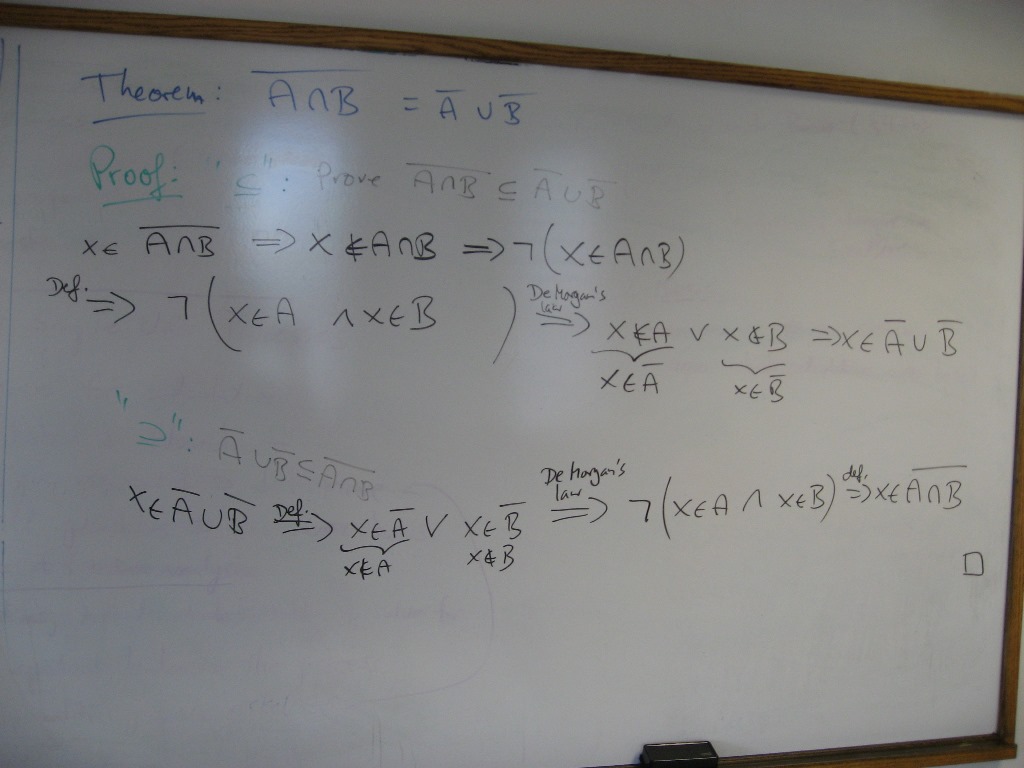 Theorem: A̅∩̅B̅ = A̅ ∪ B̅
Proof: "⊆": Prove A̅∩̅B̅ ⊆ A̅ ∪ B̅
x ∈ A̅∩̅B̅ ⟹ x ∉ A∩B ⟹ ¬(x ∈ A∩B)
Def. ⟹ ¬(x ∈ A ∧ x ∈ B) De Morgan's law ⟹ x ∉ A ∨ x ∉ B ⟹ x ∈ A̅ ∪ B̅
x ∈ A̅ x ∈ B̅
"⊇": A̅ ∪ B̅ ⊆ A̅∩̅B̅
x ∈ A̅ ∪ B̅ Def. ⟹ x ∈ A̅ ∨ x ∈ B̅ De Morgan's law ⟹ ¬(x ∈ A ∧ x ∈ B) def. ⟹ x ∈ A̅∩̅B̅
x ∉ A x ∉ B
□